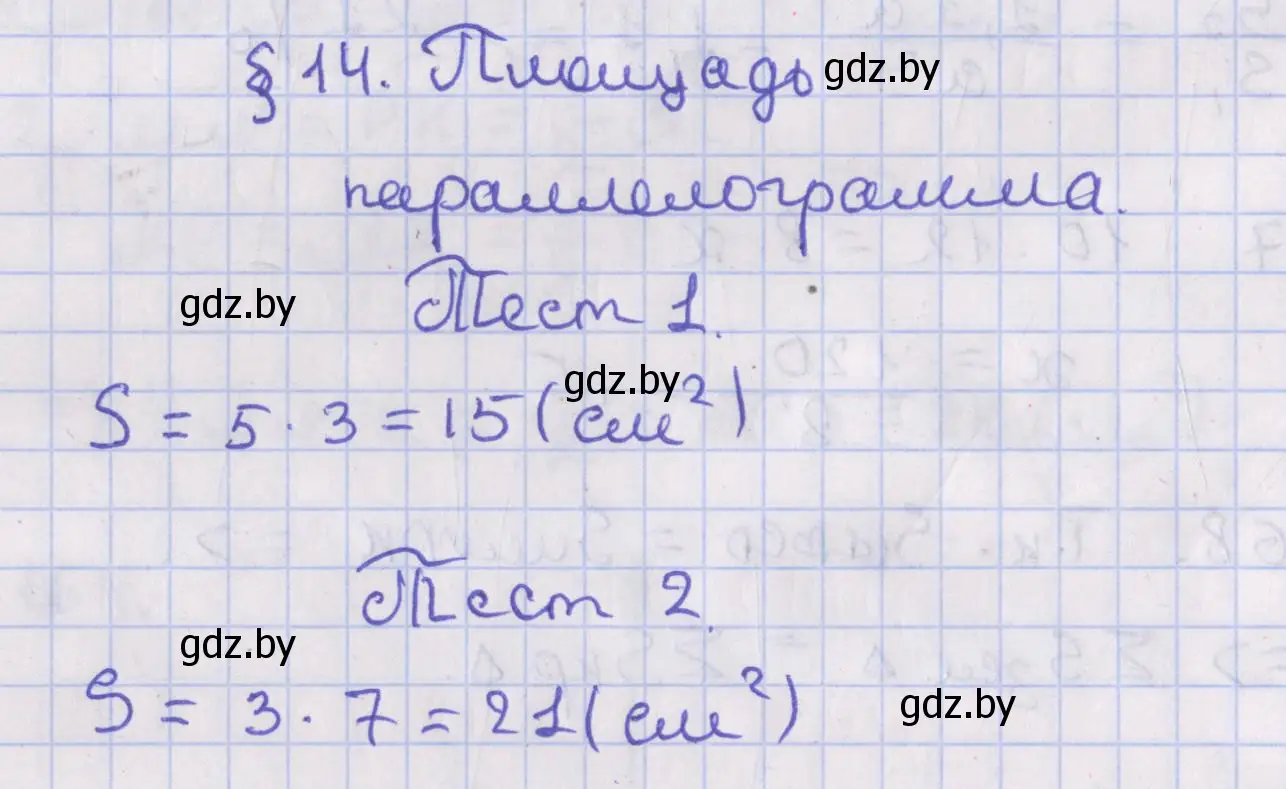 § 14. Площадь gdz.by
параллелограмма.
gdz.by Тест 1.
gdz.by
S = 5 · 3 = 15 (см²)
Тест 2.
gdz.by
S = 3 · 7 = 21 (см²) gdz.by